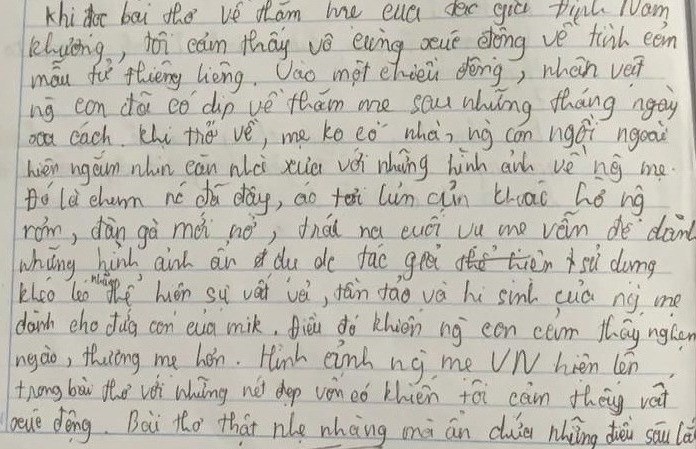 Khi đọc bài thơ về thăm mẹ của tác giả Đinh Nam
Khương, tôi cảm thấy vô cùng xúc động về tình cảm
mẫu tử thiêng liêng. Vào một chiều đông, nhân vật
ng con đã có dịp về thăm mẹ sau những tháng ngày
xa cách. Khi trở về, mẹ ko có nhà, ng con ngồi ngoài
hiên ngắm nhìn căn nhà xưa với những hình ảnh về ng mẹ.
Đó là chum nc đã đậy, áo tơi lủn củn khoác hờ ng
rơm, đàn gà mới nở, trái na cuối vụ mẹ vẫn để dành
những hình ảnh ẩn dụ đc tác giả sử dụng
khéo léo những thể hiện sự vất vả, tần tảo và hi sinh của ng mẹ
dành cho đứa con của mik. Điều đó khiến ng con cảm thấy nghẹn
ngào, thương mẹ hơn. Hình ảnh ng mẹ VN hiện lên
trong bài thơ với những nét đẹp vốn có khiến tôi cảm thấy vất
xúc động. Bài thơ thật nhẹ nhàng mà ẩn chứa những điều sâu lắ